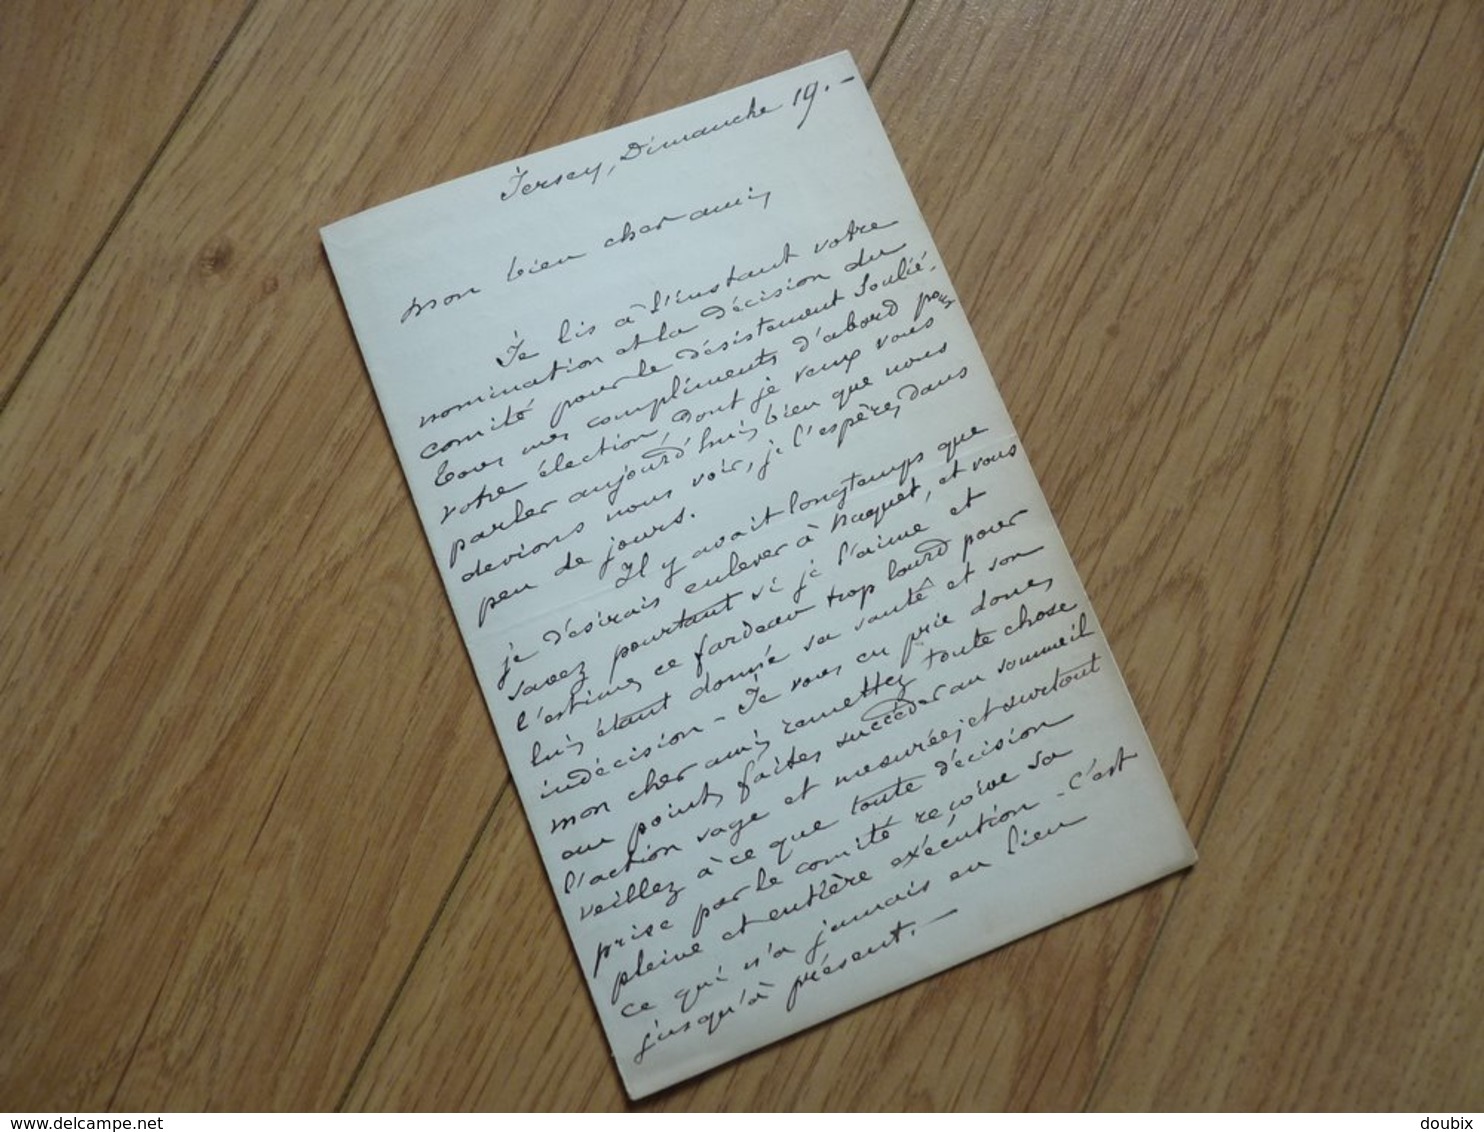 Jersey, Dimanche 19. -
Mon bien cher ami,
Je lis à l'instant votre
nomination et la décision du
comité pour le désistement Soulié.
Tous mes compliments d'abord pour
votre élection, dont je veux vous
parler aujourd'hui, bien que nous
devions nous voir, je l'espère, dans
peu de jours.
Il y avait longtemps que
je désirais enlever à Naquet, et vous
savez pourtant si je l'aime et
l'estime, ce fardeau trop lourd pour
lui, étant donné sa santé et son
indécision - Je vous en prie donc,
mon cher ami, remettez toute chose
au point, faites succéder au sommeil
l'action sage et mesurée, et surtout
veillez à ce que toute décision
prise par le comité reçoive sa
pleine et entière exécution - C'est
ce qui n'a jamais eu lieu
jusqu'à présent. -
delcampe.net
doubix